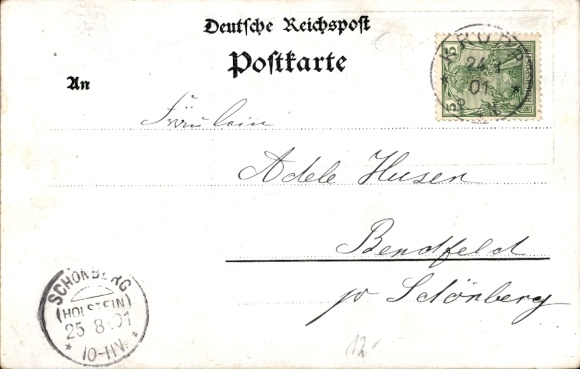 Deutsche Reichspost
Postkarte
An
Fräulein
Adele Husen
Bendfeld
pr Schönberg
5 5
24
01
SCHÖNBERG
(HOLSTEIN)
25 8 01
* 10-11 V. *
12